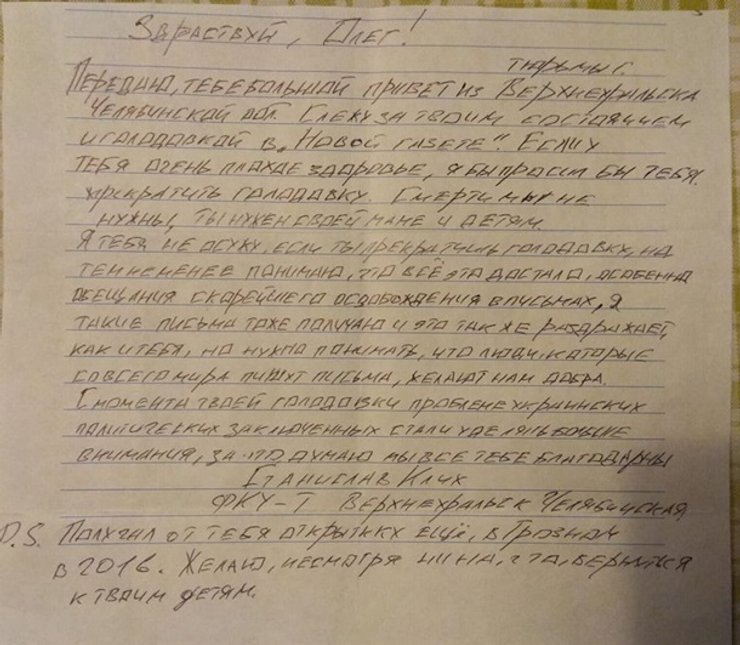 Здраствуй, Олег!
тюрьмы г.
Передаю, тебе большой привет из Верхнеуральска
Челябинской обл. Слежу за твоим состоянием
и голодовкой в „Новой газете". Если у
тебя очень плохое здоровье, я бы просил бы тебя
прекратить голодовку. Смерти мы не
нужны, ты нужен своей маме и детям.
Я тебя не осужу, если ты прекратишь голодовку, но
тем не менее понимаю, что всё это достало, особенно
обещания скорейшего освобождения в письмах, я
такие письма тоже получаю и это так же раздражает,
как и тебя, но нужно понимать, что люди, которые
со всего мира пишут письма, желают нам добра.
С момента твоей голодовки проблеме украинских
политических заключенных стали уделять больше
внимания, за что думаю мы все тебе благодарны
Станислав Клых
ФКУ-Т Верхнеуральск Челябинская
P.S. Получал от тебя открытку ещё, в Грозном
в 2016. Желаю, несмотря ни на, что, вернуться
к твоим детям.